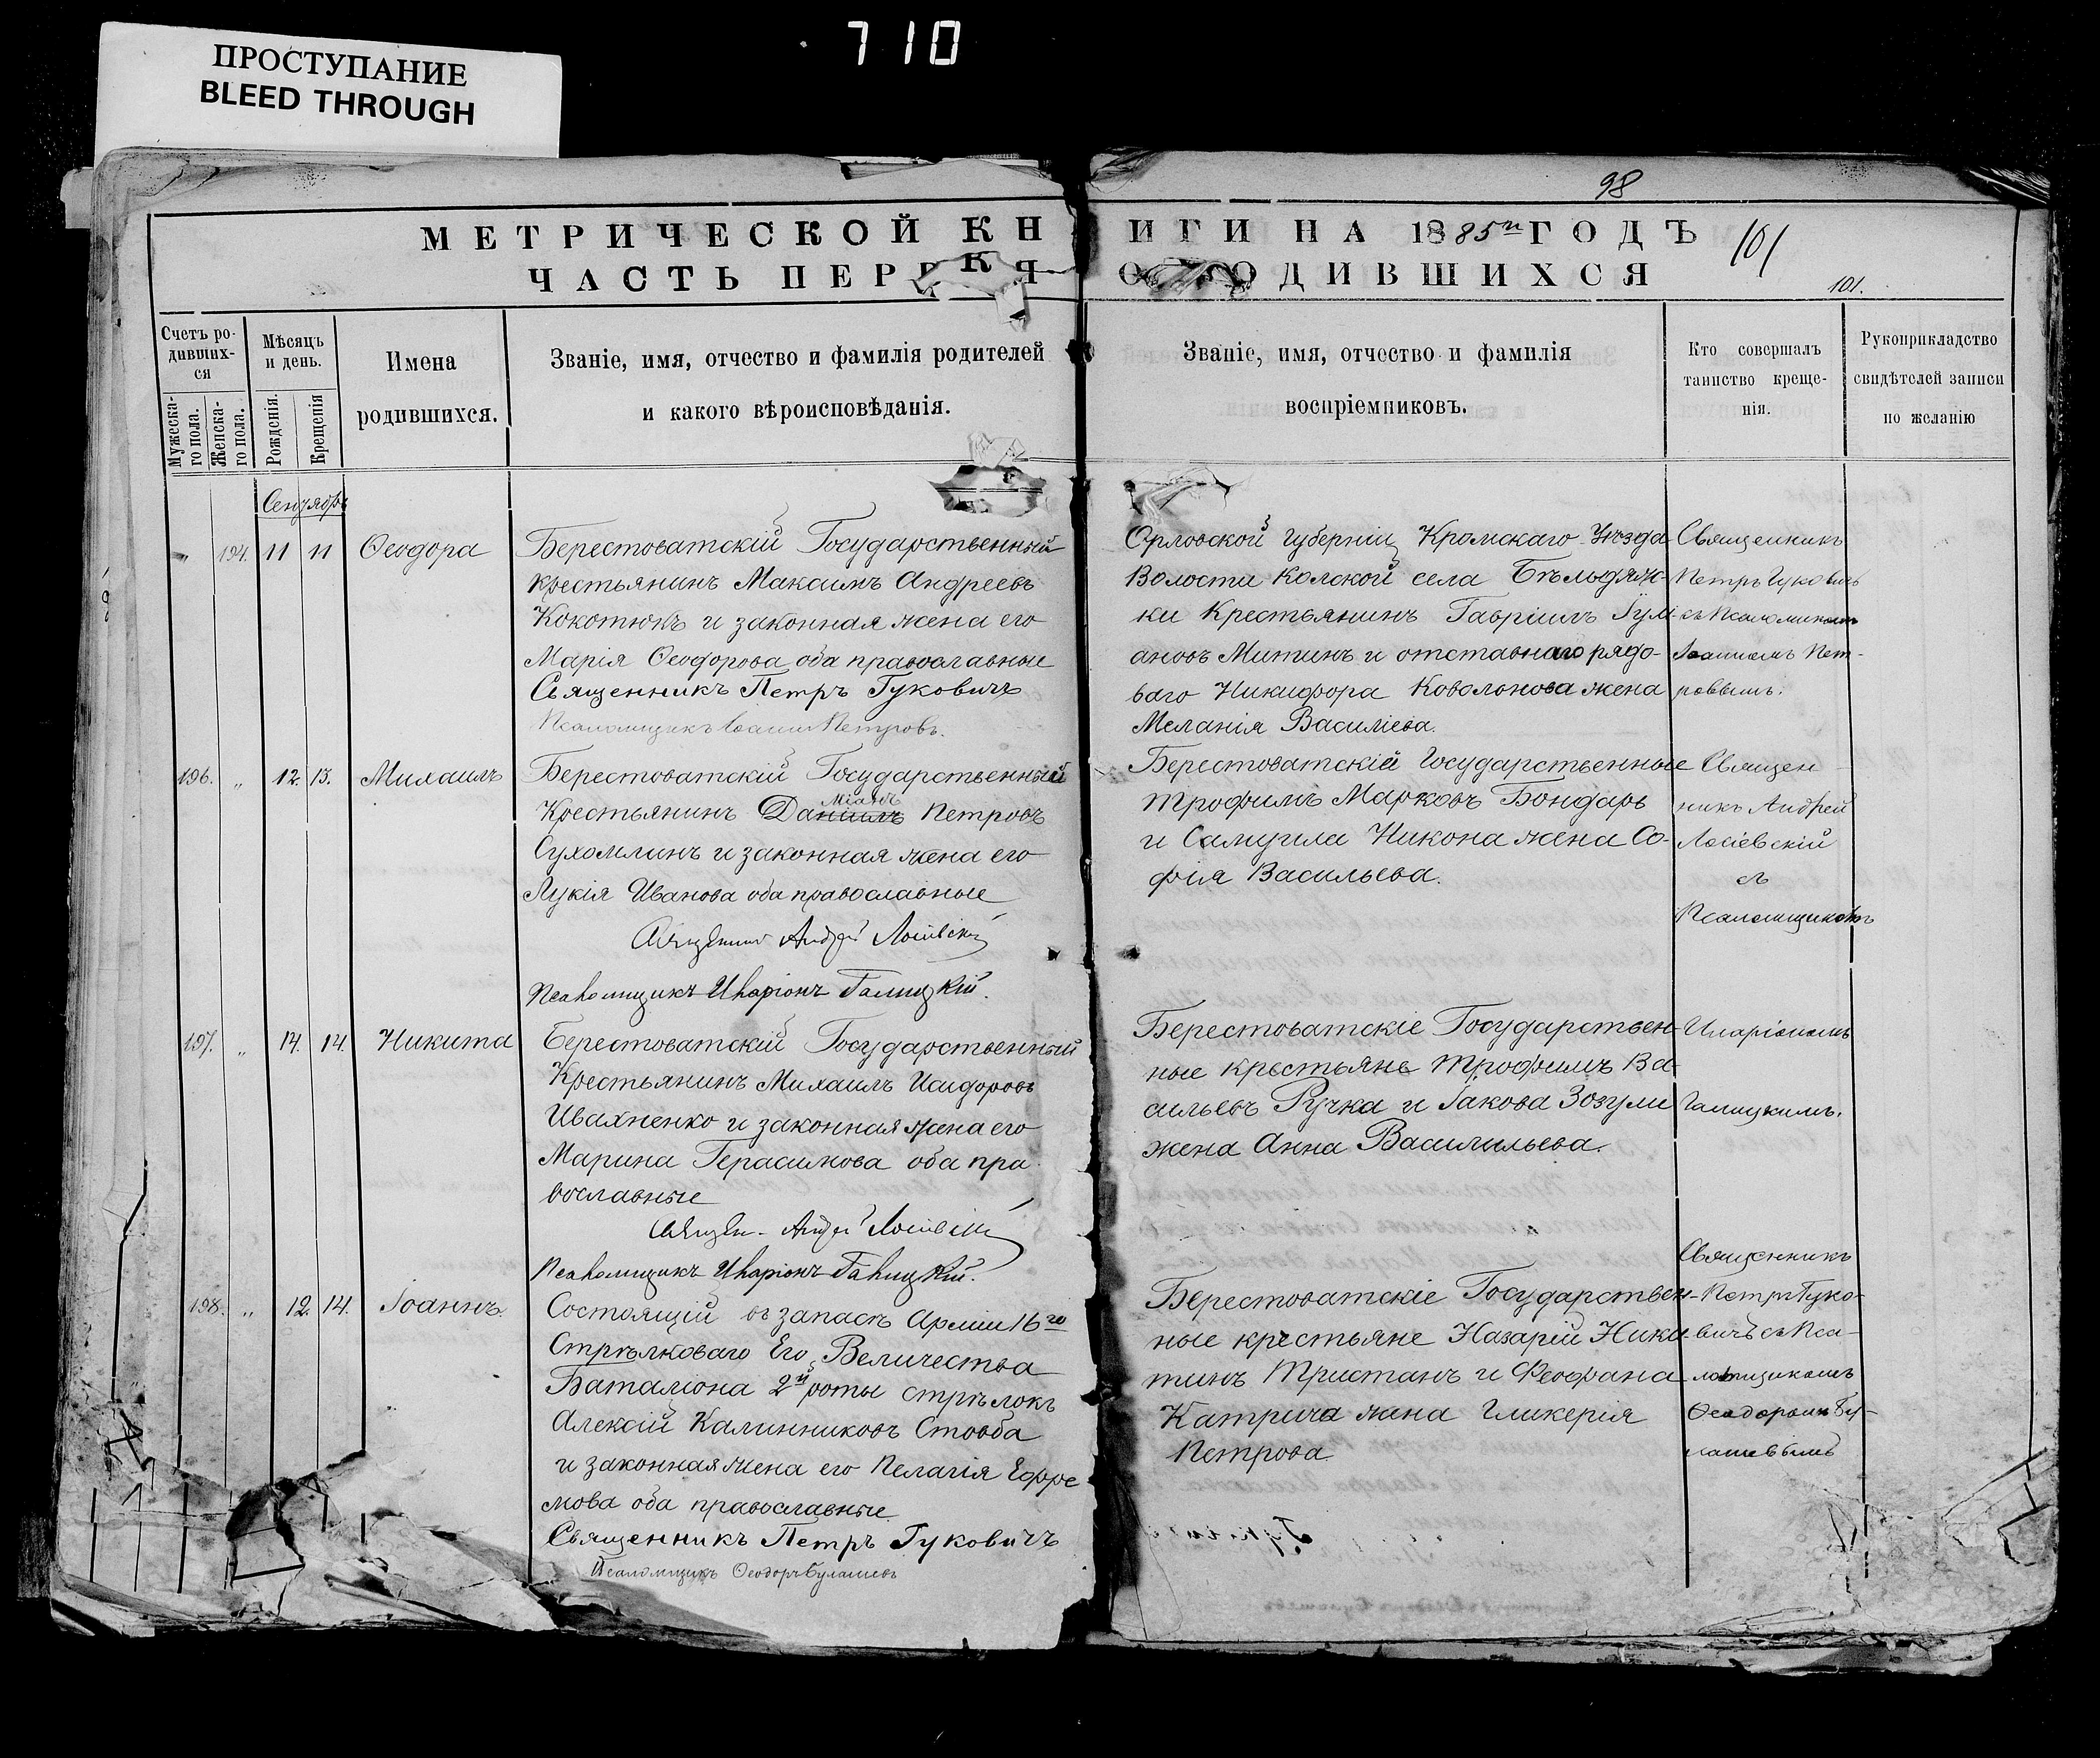 710
ПРОСТУПАНИЕ
BLEED THROUGH
98
МЕТРИЧЕСКОЙ КНИГИ НА 1885й ГОДЪ
101
ЧАСТЬ ПЕРВАЯ О РОДИВШИХСЯ
101.
Счетъ ро-
дивших-
ся
Мужеска-
го пола.
Женска-
го пола.
Мѣсяцъ
и день.
Рожденія.
Крещенія
Имена
родившихся.
Званіе, имя, отчество и фамилія родителей
и какого вѣроисповѣданія.
Званіе, имя, отчество и фамилія
воспріемниковъ.
Кто совершалъ
таинство креще-
нія.
Рукоприкладство
свидѣтелей записи
по желанію
Сентябрь
„ 194. 11 11 Ѳеодора
Берестоватскій Государственный
крестьянинъ Максимъ Андреевъ
Кокотюкъ и законная жена его
Марія Ѳеодорова оба православные
Священникъ Петръ Гуковичъ
Псаломщикъ Іоаннъ Петровъ.
Орловской губерніи Кромскаго Уѣзда
Волости Колской села Бѣльдяж-
ки Крестьянинъ Гавріилъ
ановъ Митинъ и отставнаго рядо-
ваго Никифора Коволонова жена
Меланія Василіева.
Священникъ
Петръ Гуковичъ
съ Псаломщикомъ
Іоанномъ Пет-
ровымъ.
196. „ 12. 13. Михаилъ
Берестоватскій Государственный
Крестьянинъ Даніилъ міанъ Петровъ
Сухомлинъ и законная жена его
Лукія Иванова оба православные
Священникъ Андрей Лосіевскій
Псаломщикъ Иларіонъ Галицкій.
Берестоватскій Государственные
Трофимъ Марковъ Бондарь
и Самуила Никона жена Со-
фія Васильева.
Священ-
никъ Андрей
Лосіевскій
съ
Псаломщикомъ
Иларіономъ
Галицкимъ.
197. „ 14. 14. Никита
Берестоватскій Государственный
Крестьянинъ Михаилъ Исидоровъ
Ивахненко и законная жена его
Марина Герасимова оба пра-
вославные
Священ. Андрей Лосіевскій
Псаломщикъ Иларіонъ Галицкій.
Берестоватскіе Государствен-
ные крестьяне Трофимъ Ва-
сильевъ Ручка и Іакова Зозули
жена Анна Васильева.
198. „ 12. 14. Іоаннъ.
Состоящій въ запасѣ Арміи 16го
Стрѣлковаго Его Величества
Баталіона 2й роты стрѣлокъ
Алексій Калинниковъ Стовба
и законная жена его Пелагія Ефре
мова оба православные
Священникъ Петръ Гуковичъ
Псаломщикъ Ѳеодоръ Булашевъ
Берестоватскіе Государствен-
ные крестьяне Назарій Ники
тинъ Тристанъ и Феофана
Катрича жена Гликерія
Петрова
Священникъ
Петръ Гуко-
вичъ съ Пса-
ломщикомъ
Ѳеодоромъ Бу-
лашевымъ